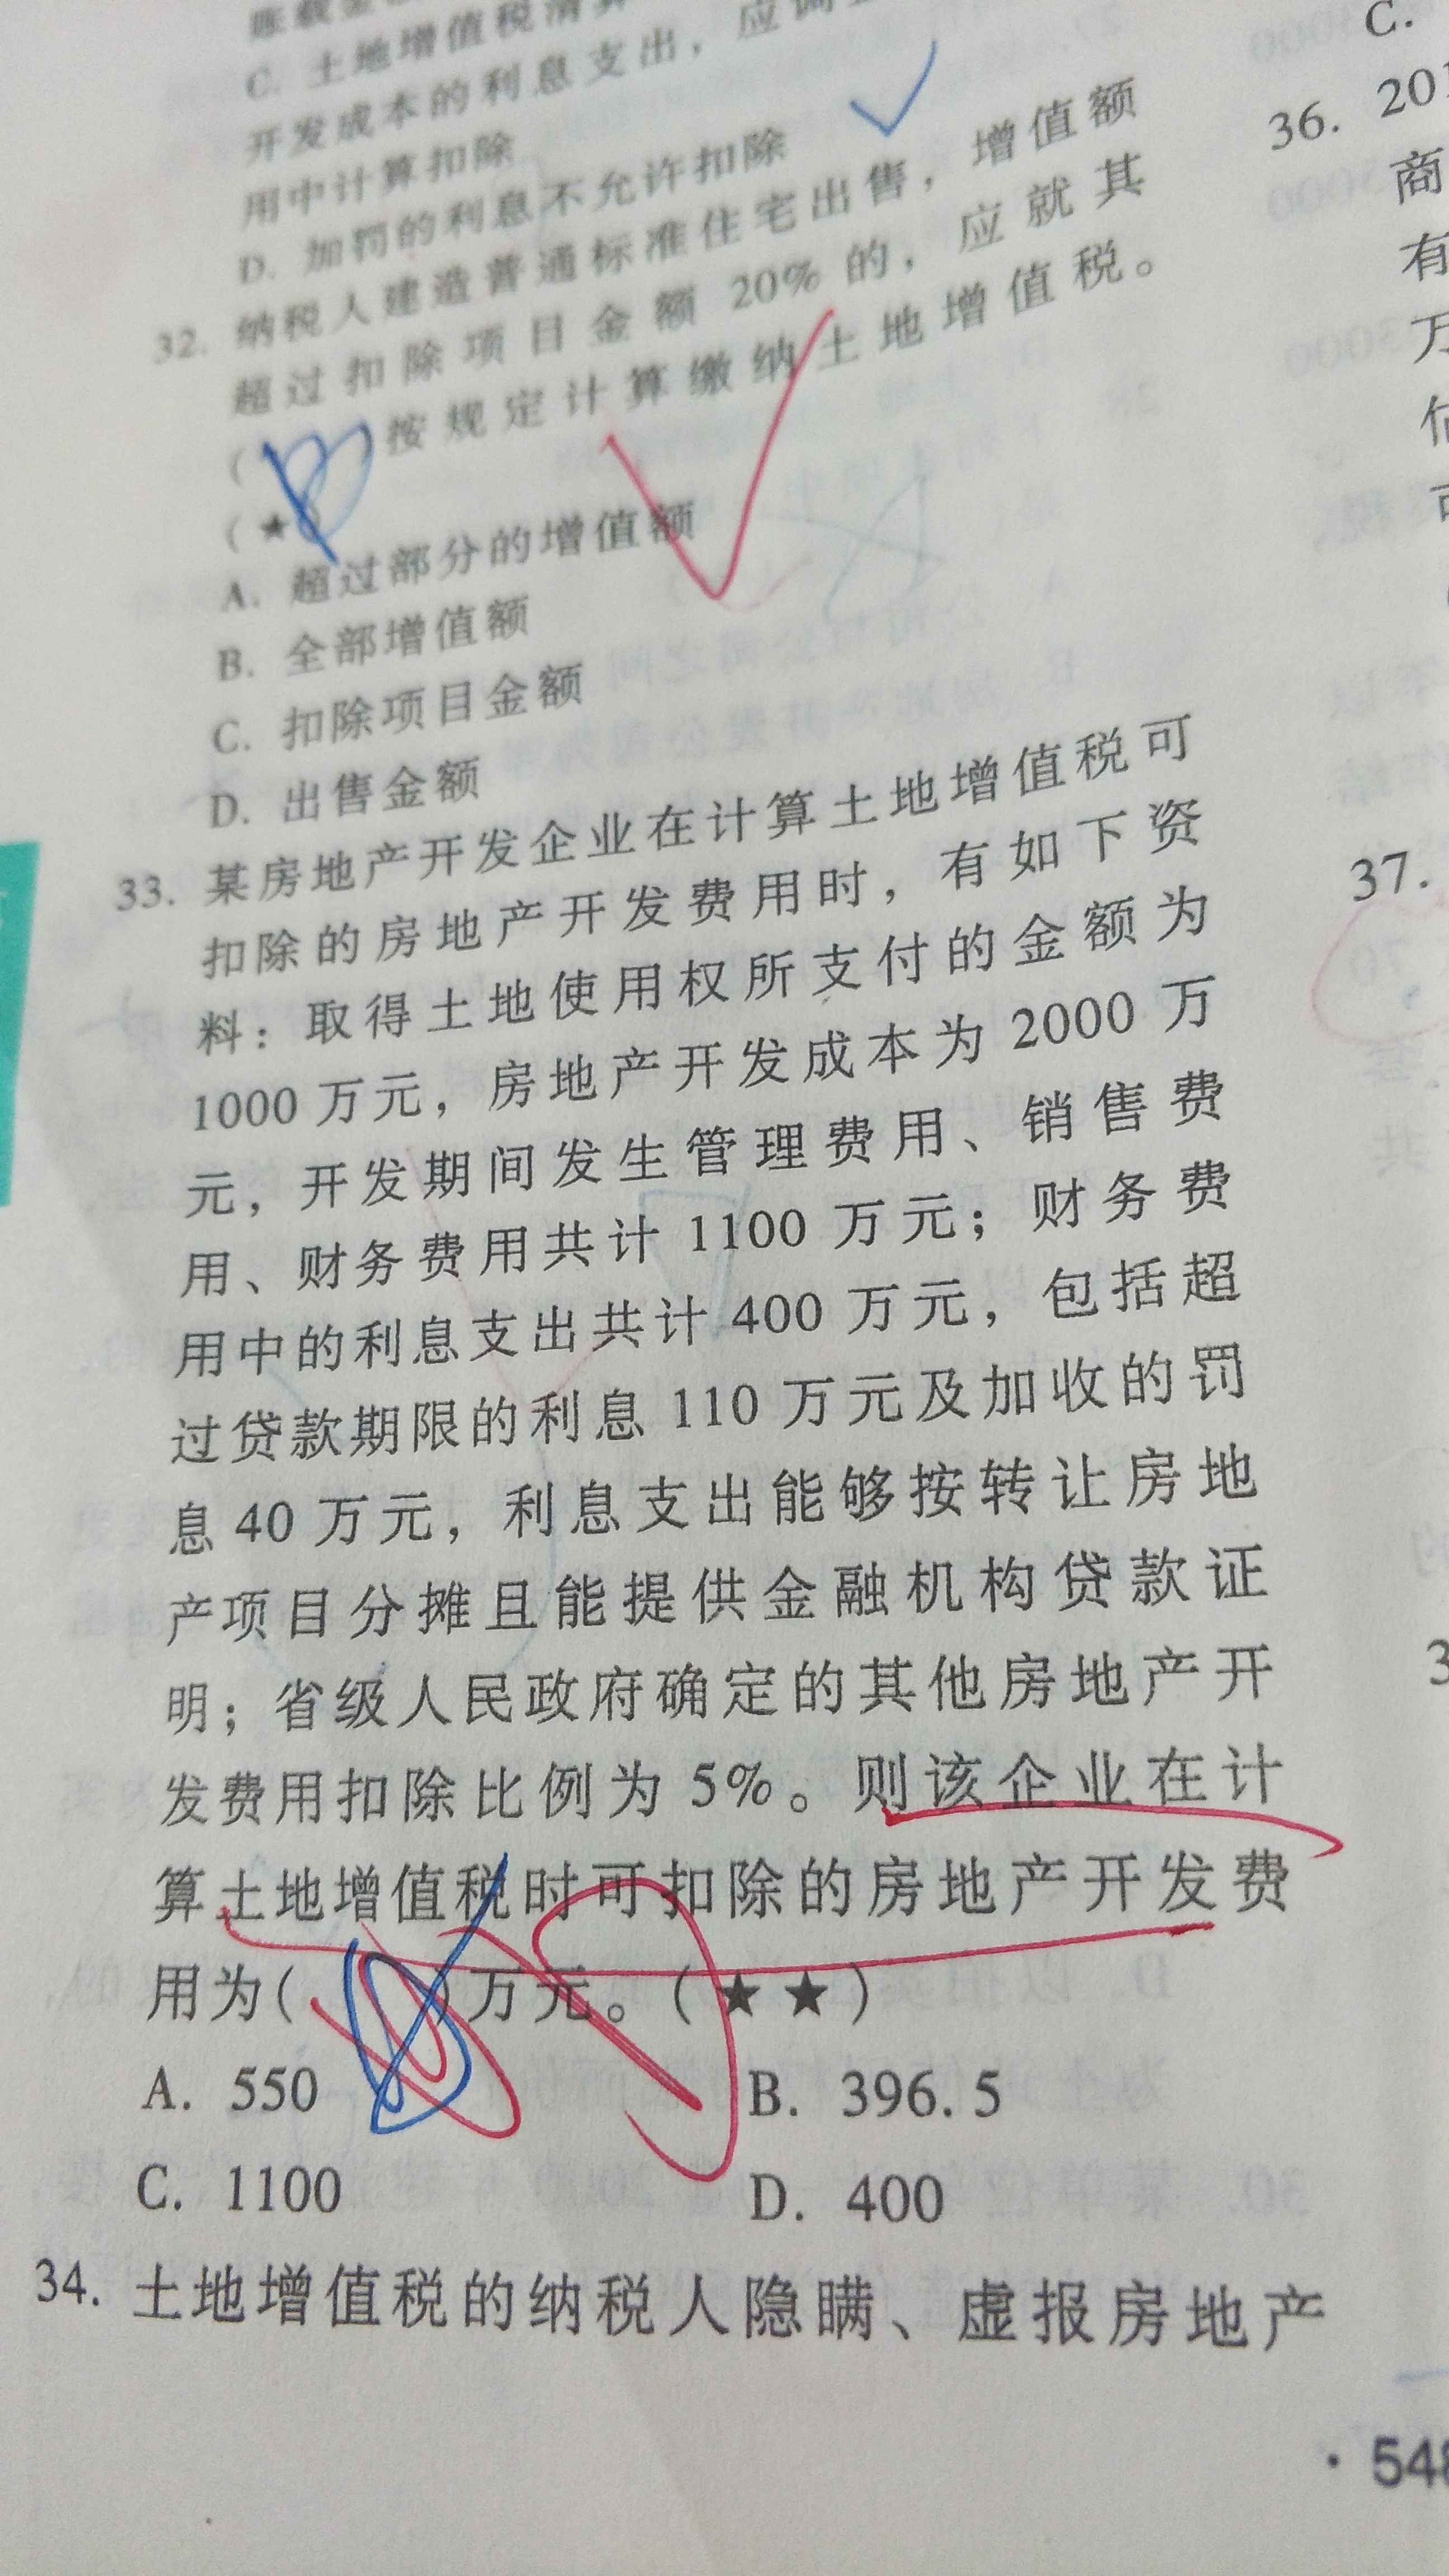 C. 土地增值税清算
开发成本的利息支出，应调
用中计算扣除
D. 加罚的利息不允许扣除
32. 纳税人建造普通标准住宅出售，增值额
超过扣除项目金额 20% 的，应就其
( )按规定计算缴纳土地增值税。
(★)
A. 超过部分的增值额
B. 全部增值额
C. 扣除项目金额
D. 出售金额
33. 某房地产开发企业在计算土地增值税可
扣除的房地产开发费用时，有如下资
料：取得土地使用权所支付的金额为
1000 万元，房地产开发成本为 2000 万
元，开发期间发生管理费用、销售费
用、财务费用共计 1100 万元；财务费
用中的利息支出共计 400 万元，包括超
过贷款期限的利息 110 万元及加收的罚
息 40 万元，利息支出能够按转让房地
产项目分摊且能提供金融机构贷款证
明；省级人民政府确定的其他房地产开
发费用扣除比例为 5%。则该企业在计
算土地增值税时可扣除的房地产开发费
用为( )万元。(★★)
A. 550 B. 396.5
C. 1100 D. 400
34. 土地增值税的纳税人隐瞒、虚报房地产
C.
36. 201
商
有
万
估
37.
· 548